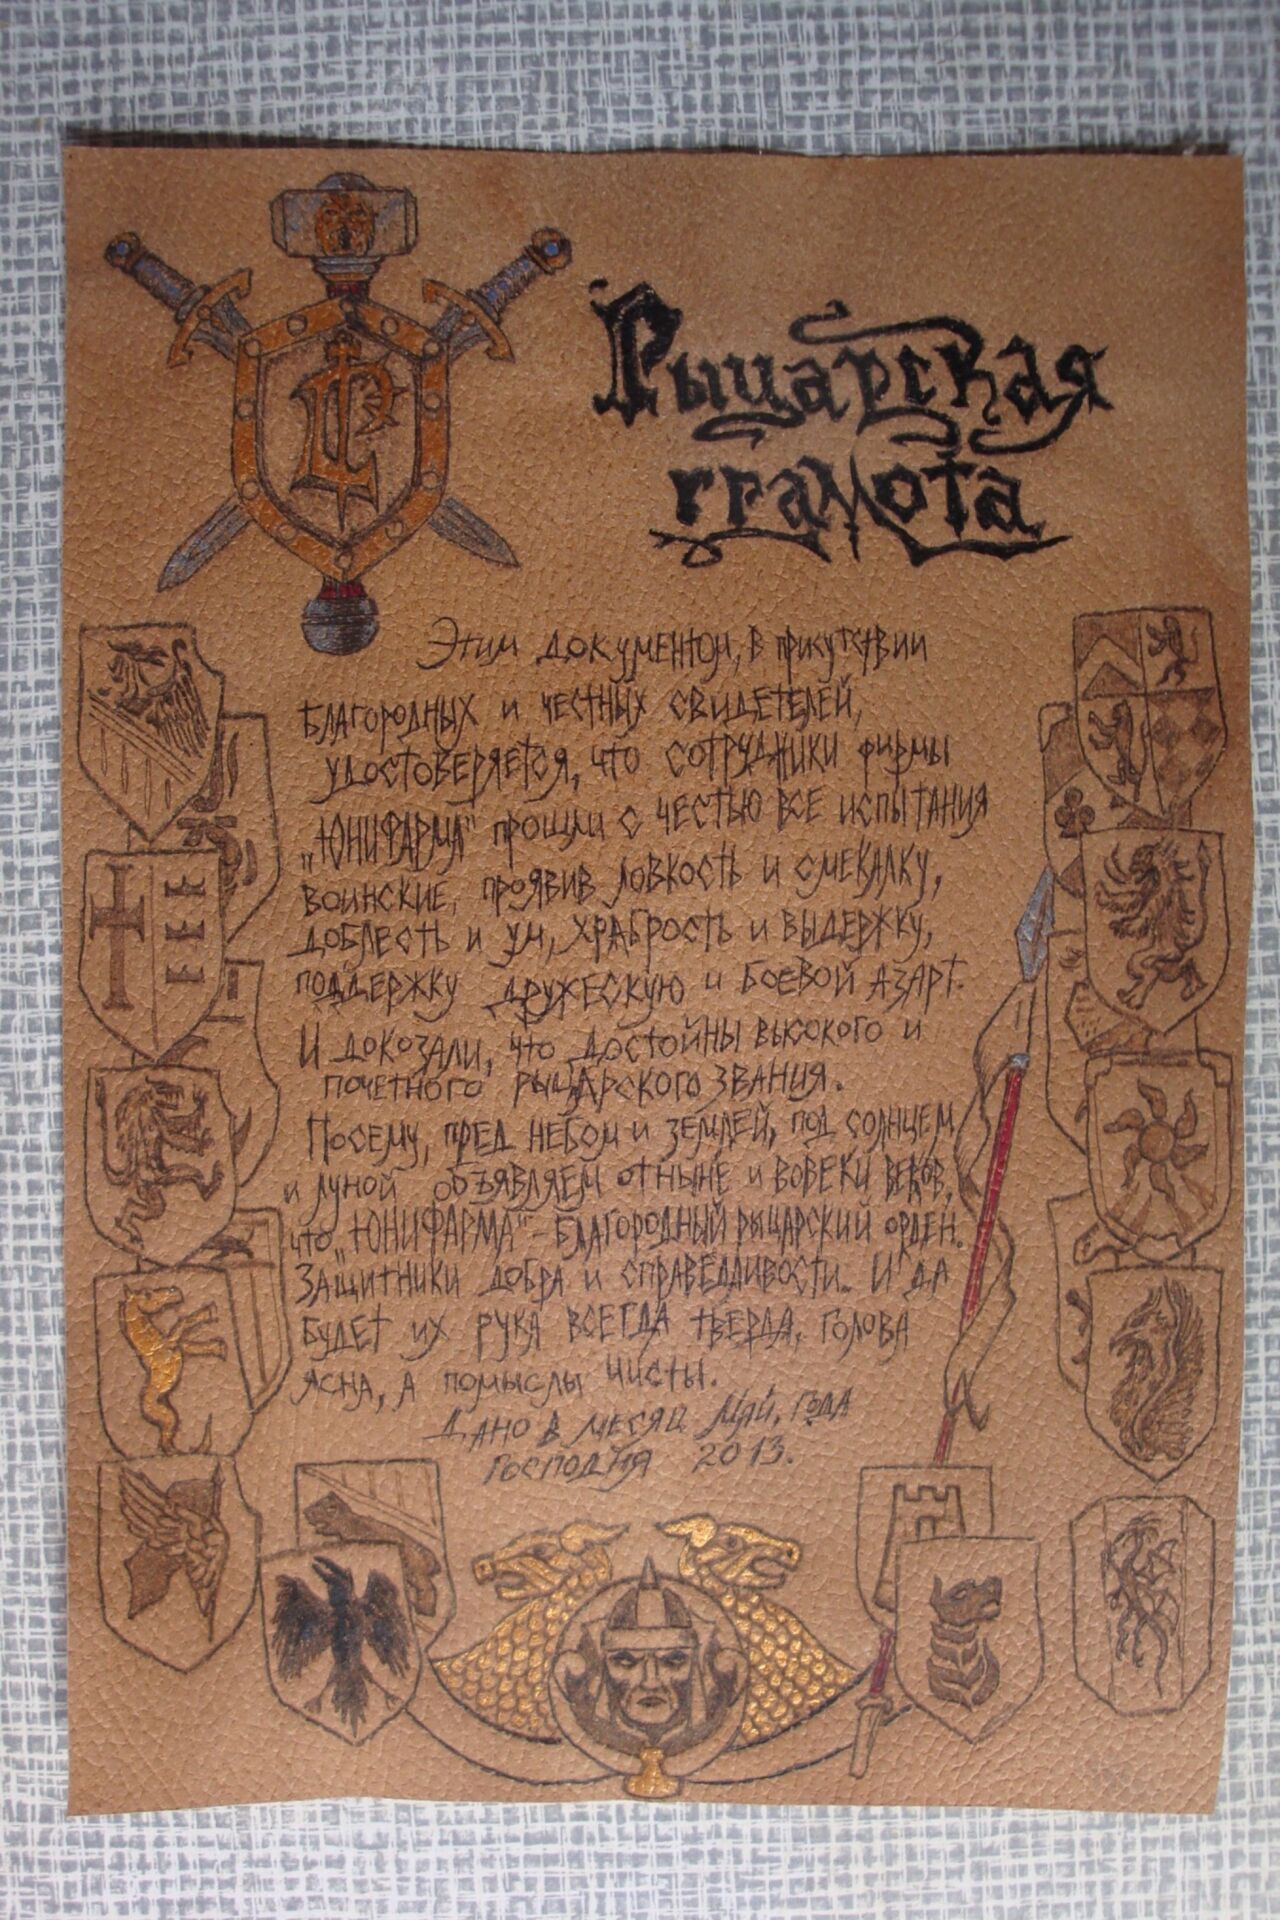 Рыцарская
грамота
Этим документом, в присутствии
благородных и честных свидетелей,
удостоверяется, что сотруджики фирмы
„Юнифарма" прошли с честью все испытания
воинские, проявив ловкость и смекалку,
доблесть и ум, храбрость и выдержку,
поддержку дружескую и боевой азарт.
И докозали, что достойны высокого и
почетного рыцарского звания.
Посему, пред небом и землей, под солнцем
и луной объявляем отныне и вовеки веков,
что „Юнифарма" - благородный рыцарский орден.
Защитники добра и справедливости. И да
будет их рука всегда тверда, голова
ясна, а помыслы чисты.
Дано в месяц май, года
господня 2013.